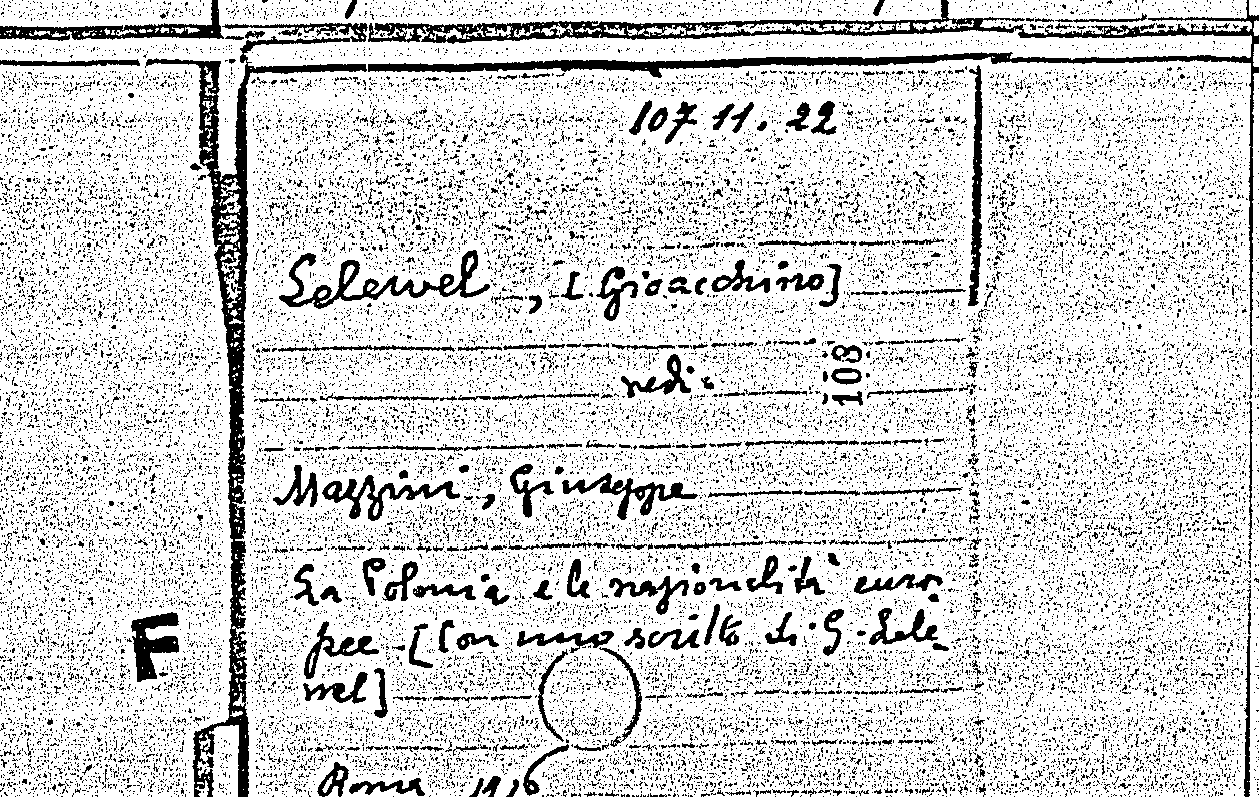 107 11. 22
Lelewel, [Gioacchino]
vedi:
108
Mazzini, Giuseppe
La Polonia e le nazionalità euro-
pee. [Con uno scritto di G. Lele-
wel]
F
Roma